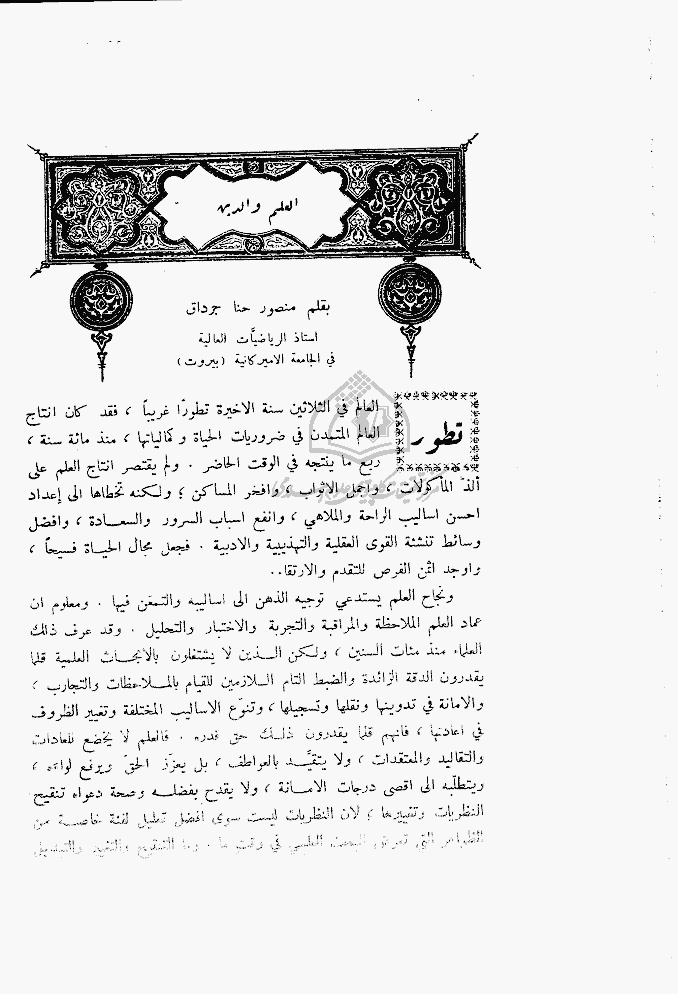 العلم والدين
بقلم منصور حنا جرداق
استاذ الرياضيَّات العالية
في الجامعة الاميركانية (بيروت)
تطور
العالم في الثلاثين سنة الاخيرة تطورًا غريباً ، فقد كان انتاج
العالم المتمدن في ضروريات الحياة وكمالياتها ، منذ مائة سنة ،
ربع ما ينتجه في الوقت الحاضر . ولم يقتصر انتاج العلم على
ألذّ المأكولات ، واجمل الاثواب ، وافخر المساكن ؛ ولكنه تخطاها الى إعداد
احسن اساليب الراحة والملاهي ، وانفع اسباب السرور والسعادة ، وافضل
وسائط تنشئة القوى العقلية والتهذيبية والادبية . فجعل مجال الحياة فسيحاً ،
واوجد اثمن الفرص للتقدم والارتقاء.
ونجاح العلم يستدعي توجيه الذهن الى اساليبه والتمعّن فيها . ومعلوم ان
عماد العلم الملاحظة والمراقبة والتجربة والاختبار والتحليل . وقد عرف ذلك
العلماء منذ مئات السنين ، ولكن الذين لا يشتغلون بالابحاث العلمية قلما
يقدرون الدقة الزائدة والضبط التام اللازمين للقيام بالملاحظات والتجارب ،
والامانة في تدوينها ونقلها وتسجيلها ، وتنوّع الاساليب المختلفة وتغيير الظروف
في اعادتها ، فانهم قلما يقدرون ذلك حق قدره . فالعلم لا يخضع للعادات
والتقاليد والمعتقدات ، ولا يتقيَّد بالعواطف ، بل يعزّز الحقّ ويرفع لواءه ،
ويتطلّبه الى اقصى درجات الامانة ، ولا يقدح بفضله وصحة دعواه تنقيح
النظريات وتغييرها ؛ لان النظريات ليست سوى افضل تعليل لفئة خاصة من
الظواهر التي تعرض للبحث العلمي في وقت ما . وما التنقيح والتغيير والتبديل